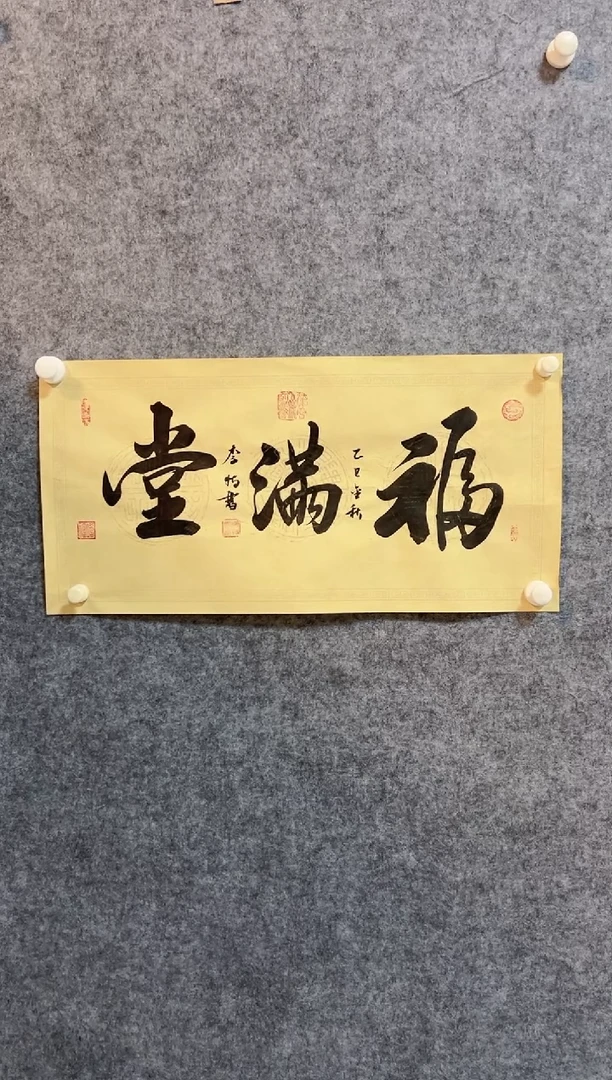 福满堂
乙巳年秋
李书